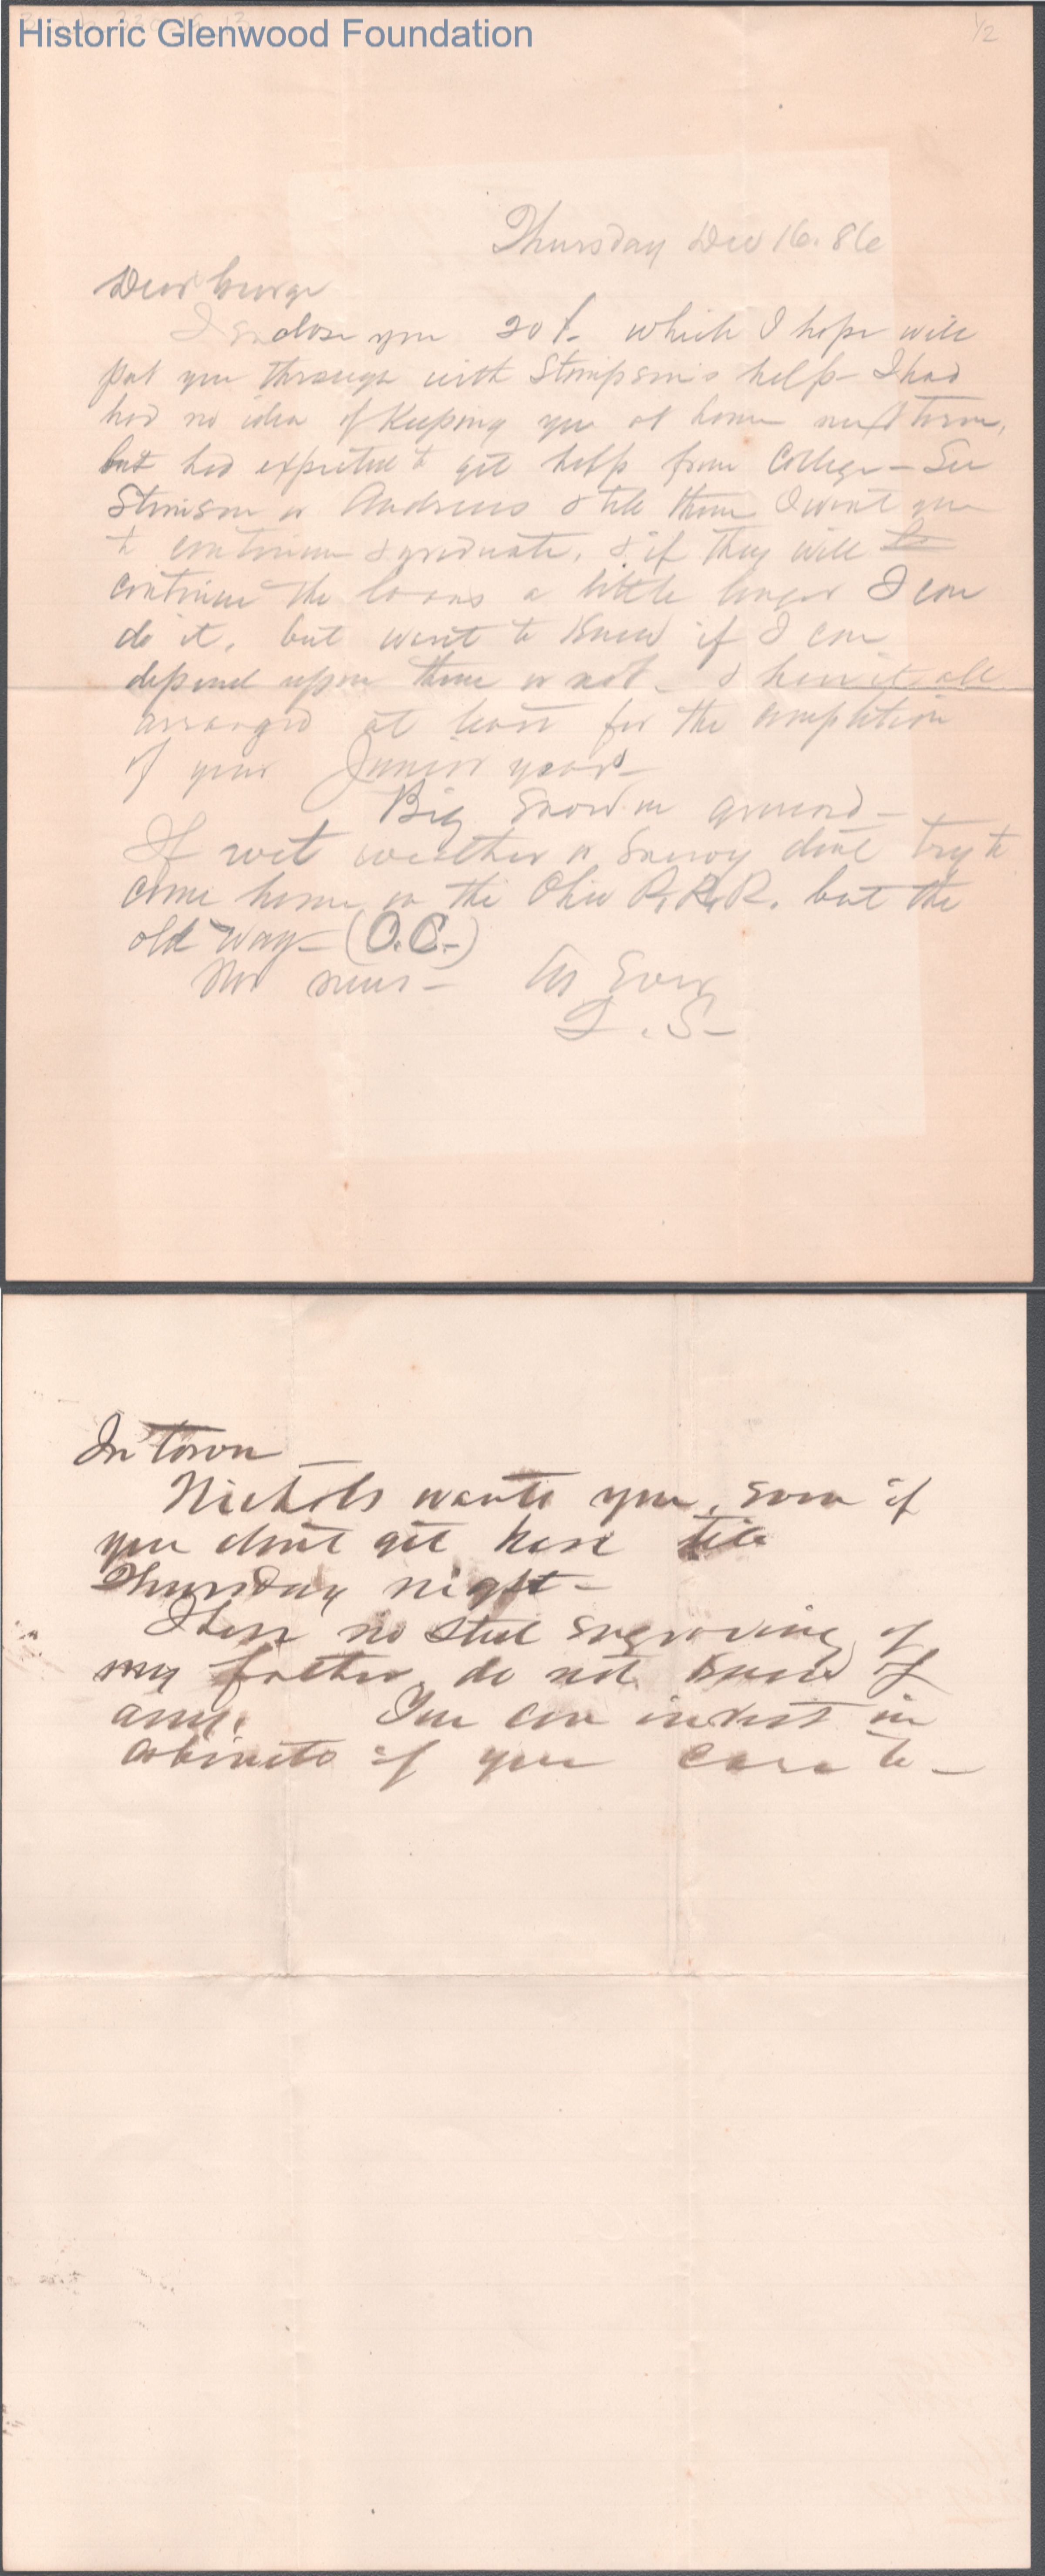 Historic Glenwood Foundation
1/2
Thursday Dec 16. 86
Dear George
I enclose you 20 $. which I hope will
put you through with Stimpson's help - I had
had no idea of keeping you at home next term,
but had expected to get help from College - See
Stimson or Andrews & tell them I want you
to continue & graduate, & if they will to
continue the loans a little longer I can
do it, but want to know if I can
depend upon them or not - I have it all
arranged at least for the completion
of your Junior year -
Big snow on ground -
If wet weather or snowy dont try to
come home on the Ohio R. R. R. but the
old way - (O.C.-)
No news - As Ever
S -
In town -
Nichols wants you, even if
you dont get here till
Thursday night -
I have no steel engraving of
my father, do not know of
any. You can invest in
cabinets if you care to -